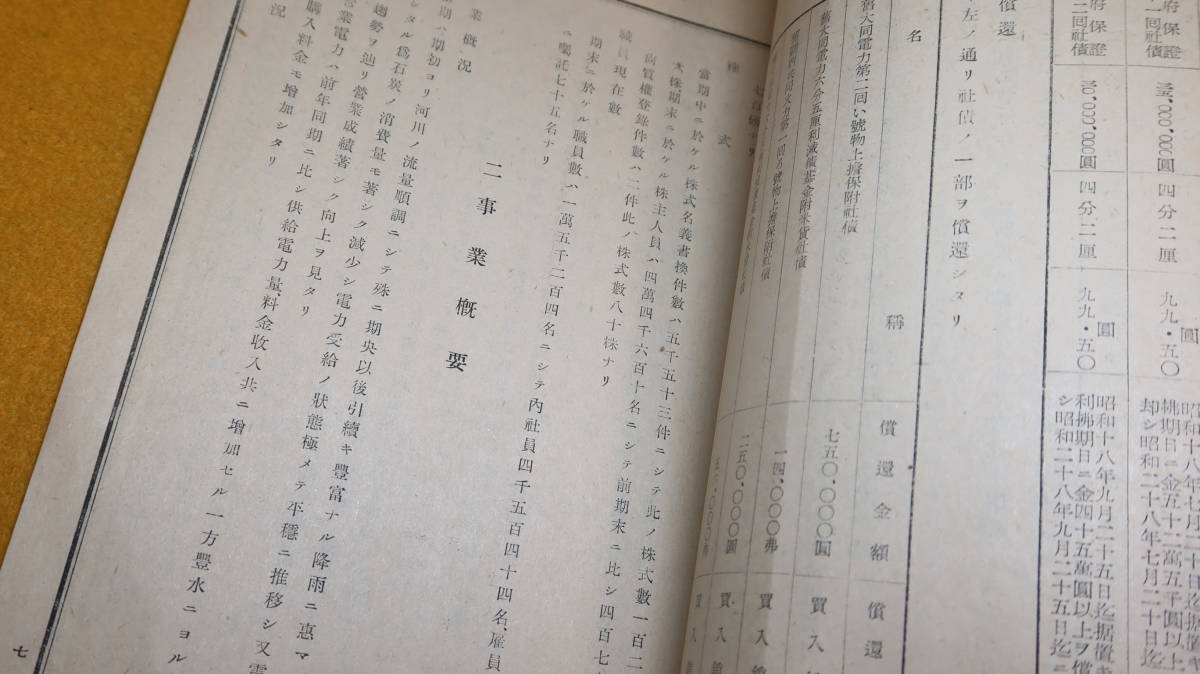 府保證
二回社債
三〇,〇〇〇,〇〇〇圓
四分二厘
圓
九九・五〇
府保證
二回社債
三〇,〇〇〇,〇〇〇圓
四分二厘
圓
九九・五〇
昭和十八年九月二十五日迄据置キ
利拂期日ニ金四十五萬圓以上ヲ償
シ昭和二十八年九月二十五日迄ニ
償還
左ノ通リ社債ノ一部ヲ償還シタリ
名稱
償還金額
償還
舊大同電力第二回い號物上擔保附社債
七五〇,〇〇〇圓
買入
舊大同電力六分五厘利減債基金附米貨社債
一四,〇〇〇弗
買入
二五〇,〇〇〇圓
買入
買入
株式
當期中ニ於ケル株式名義書換件數ハ五千五十三件ニシテ此ノ株式數一百二
大株期末ニ於ケル株主人員ハ四萬四千六百十名ニシテ前期末ニ比シ四百七
尚質權登錄件數ハ二件此ノ株式數八十株ナリ
職員現在數
期末ニ於ケル職員數ハ一萬五千二百四名ニシテ內社員四千五百四十四名、雇員
ニ囑託七十五名ナリ
二事業槪要
業槪況
期ハ期初ヨリ河川ノ流量順調ニシテ殊ニ期央以後引續キ豐富ナル降雨ニ惠マ
シタル爲石炭ノ消費量モ著シク減少シ電力受給ノ狀態極メテ平穩ニ推移シ又電
趨勢ヲ辿リ營業成績著シク向上ヲ見タリ
營業電力ハ前年同期ニ比シ供給電力量、料金收入共ニ增加セル一方豐水ニヨル
購入料金モ增加シタリ
況
七